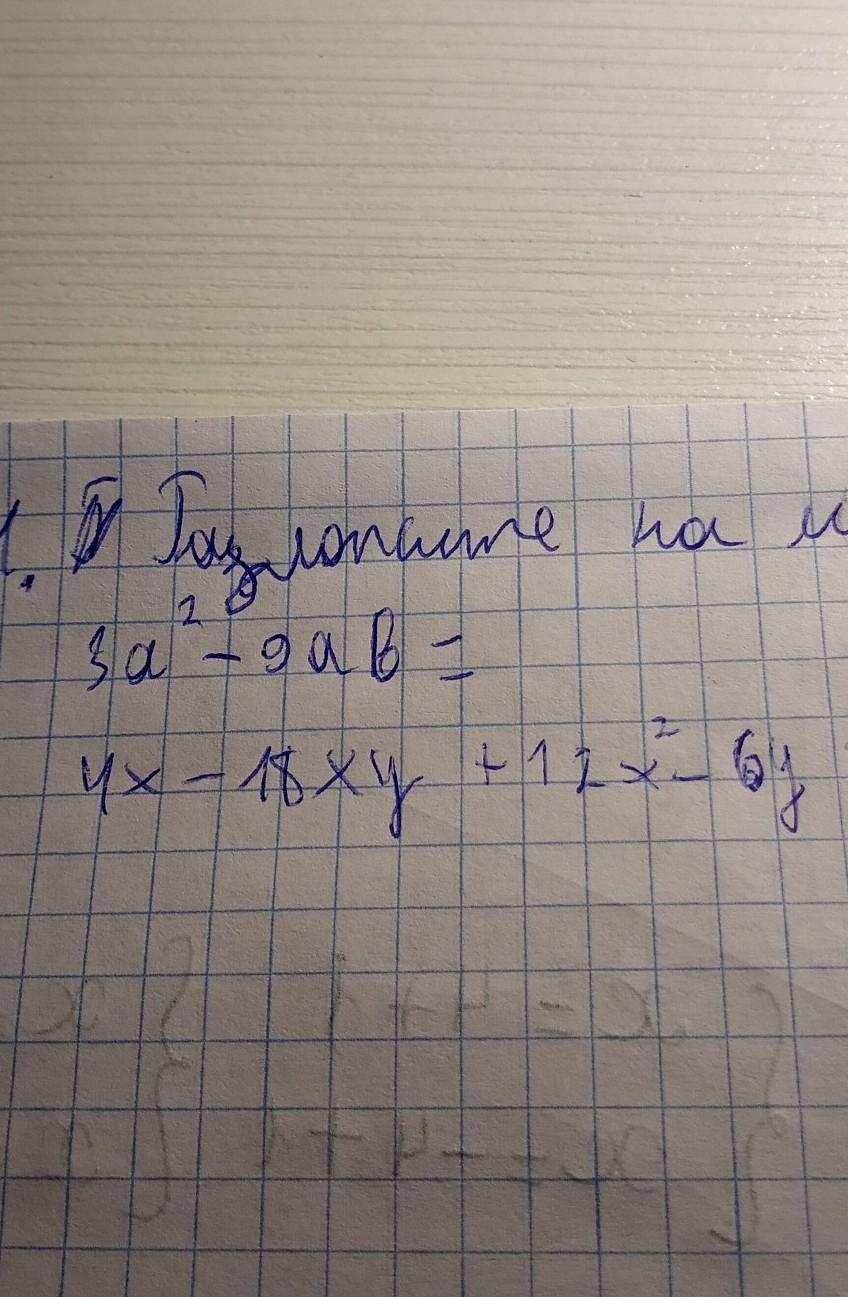 1. Разложите на м
3a² - 9ab =
4x - 18xy + 12x² - 6y